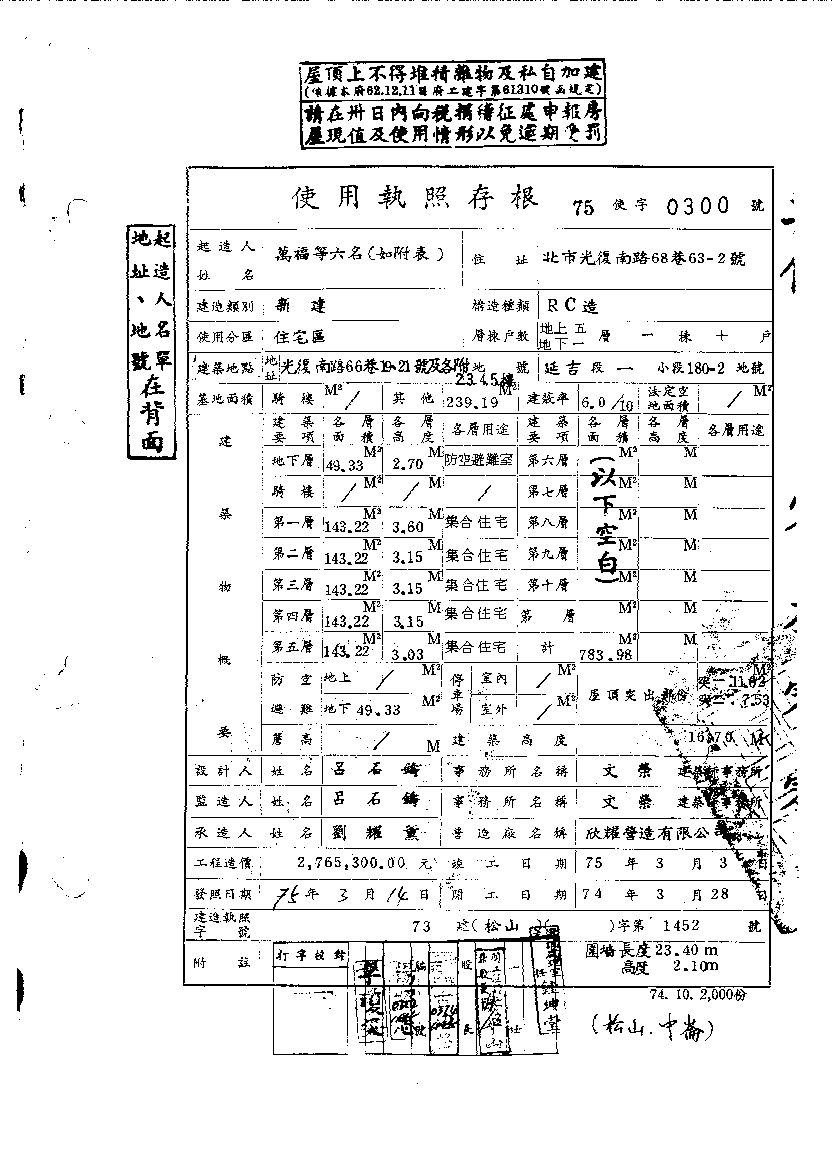 屋頂上不得堆積雜物及私自加建
(依據本府62.12.11.府工建字第61310號函規定)
請在卅日內向稅捐稽征處申報房
屋現值及使用情形以免逾期受罰
使用執照存根 75 使字 0300 號
起造人名單
地址、地號
在背面
起造人姓名 萬福等六名(如附表) 住址 北市光復南路68巷63-2號
建造類別 新建 構造種類 RC造
使用分區 住宅區 層棟戶數 地上五 地下一 層 一 棟 十 戶
建築地點 地址 光復南路66巷19.21號及各附 2.3.4.5樓 地號 延吉段 一 小段180-2 地號
基地面積 騎樓 / M² 其他 239.19 M² 建蔽率 6.0/10 法定空地面積 / M²
建築物概要
建築要項 各層面積 各層高度 各層用途 建築要項 各層面積 各層高度 各層用途
地下層 49.33 M² 2.70 M 防空避難室 第六層 M² M
騎樓 / M² / M / 第七層 M² M
第一層 143.22 M² 3.60 M 集合住宅 第八層 M² M
第二層 143.22 M² 3.15 M 集合住宅 第九層 M² M
第三層 143.22 M² 3.15 M 集合住宅 第十層 M² M
第四層 143.22 M² 3.15 M 集合住宅 第 層 M² M
第五層 143.22 M² 3.03 M 集合住宅 計 783.98 M² M
(以下空白)
防空避難 地上 / M² 停車場 室內 / M² 屋頂突出部份 突一 11.82 M²
地下 49.33 M² 室外 / M² 突二 7.53
簷高 / M 建築高度 M
設計人 姓名 呂石鑄 事務所名稱 文榮 建築師事務所
監造人 姓名 呂石鑄 事務所名稱 文榮 建築師事務所
承造人 姓名 劉耀薰 營造廠名稱 欣耀營造有限公司
工程造價 2,765,300.00 元 竣工日期 75 年 3 月 3 日
發照日期 75年 3 月 14 日 開工日期 74 年 3 月 28 日
建造執照字號 73 建(松山)( )字第 1452 號
附註 打字校對 股長 圍牆長度23.40m
高度 2.10m
74.10.2,000份
(松山.中崙)